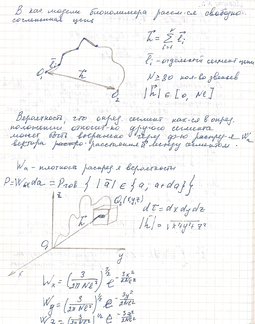 В как модели биополимера рассм-ся свободно-
сочлененная цепь
h⃗ = Σ l⃗ᵢ
l⃗ᵢ - отдельный сегмент цепи
N ≥ 80 кол-во звеньев
|h⃗| ∈ [0, Nl]
O₁ h⃗ O₂
Вероятность, что опред. сегмент нах-ся в опред.
положении относит-но другого сегмента
может быть выражена через ф-ю распред-я
вектора расстояния между
Wₙ - плотность распред-я вероятности
P = W da = P { |a⃗| ∈ {a; a+da}}
z
O₂(x,y,z)
dτ = dx dy dz
|h⃗| = √x²+y²+z²
h⃗
O₁
y
x
Wₓ = (3/2πNl²)^½ e^-3x²/2Nl²
W_y = (3/2πNl²)^½ e^-3y²/2Nl²
W_z = (3/2πNl²)^½ e^-3z²/2Nl²